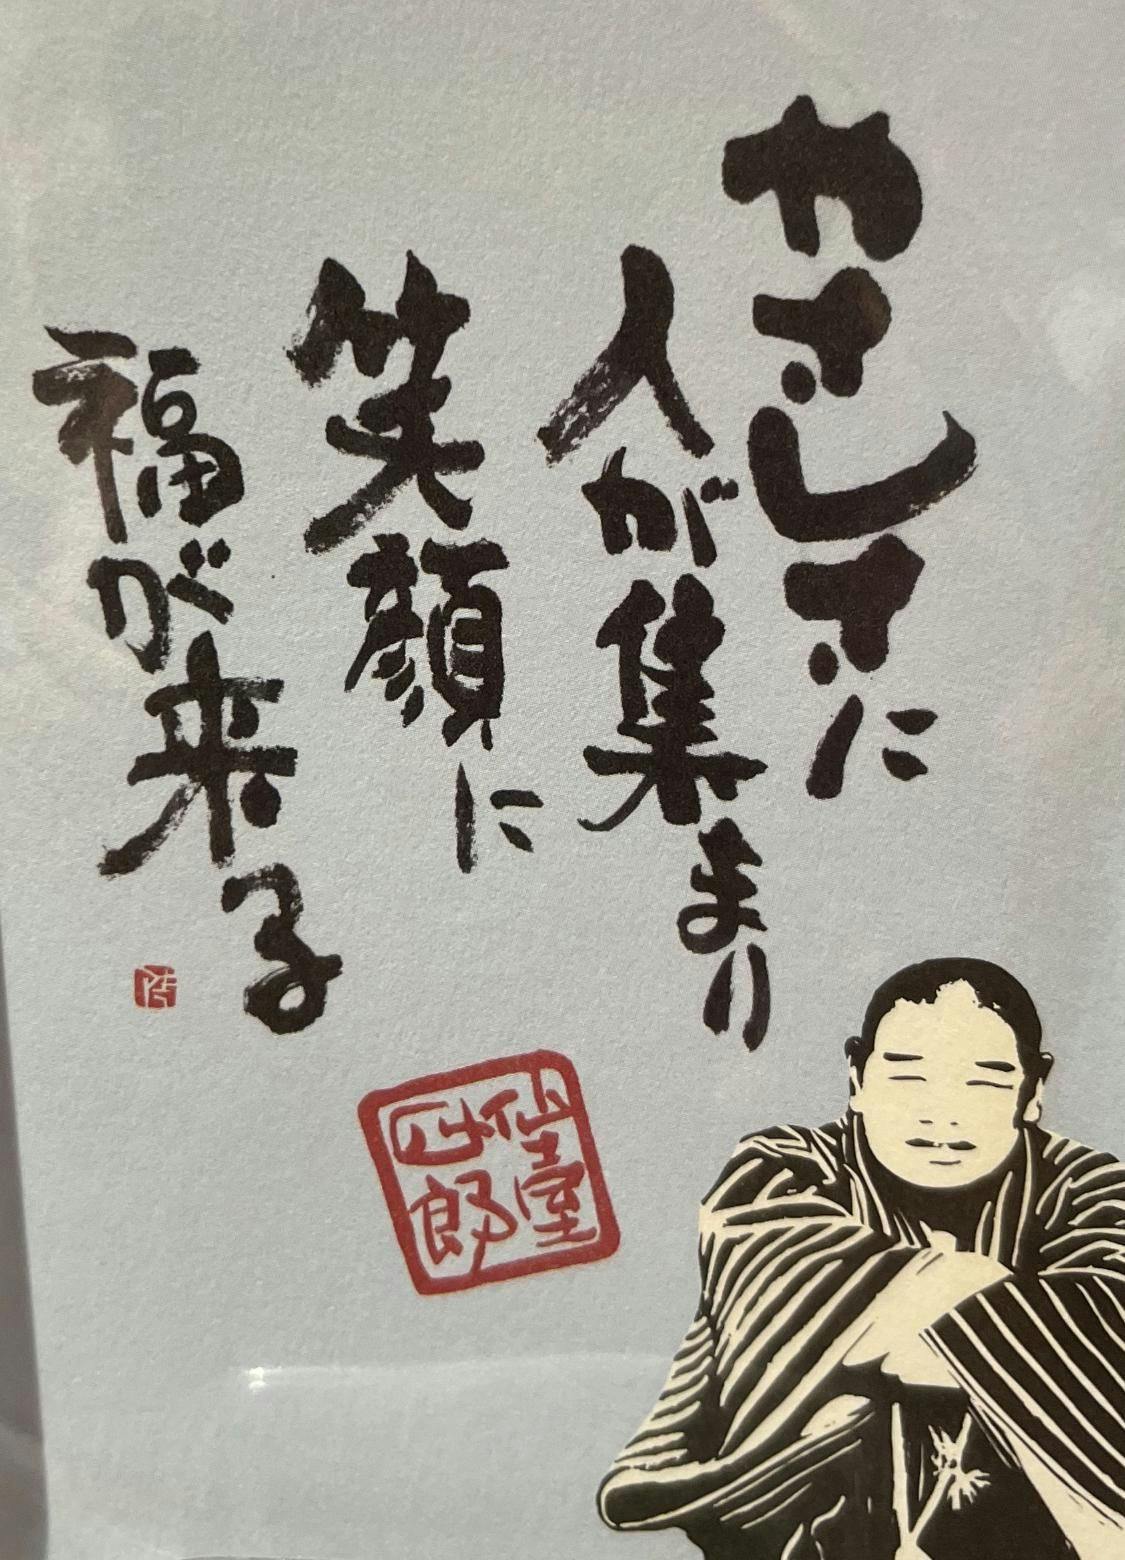 やさしさに
人が集まり
笑顔に
福が来る
仙臺
四郎